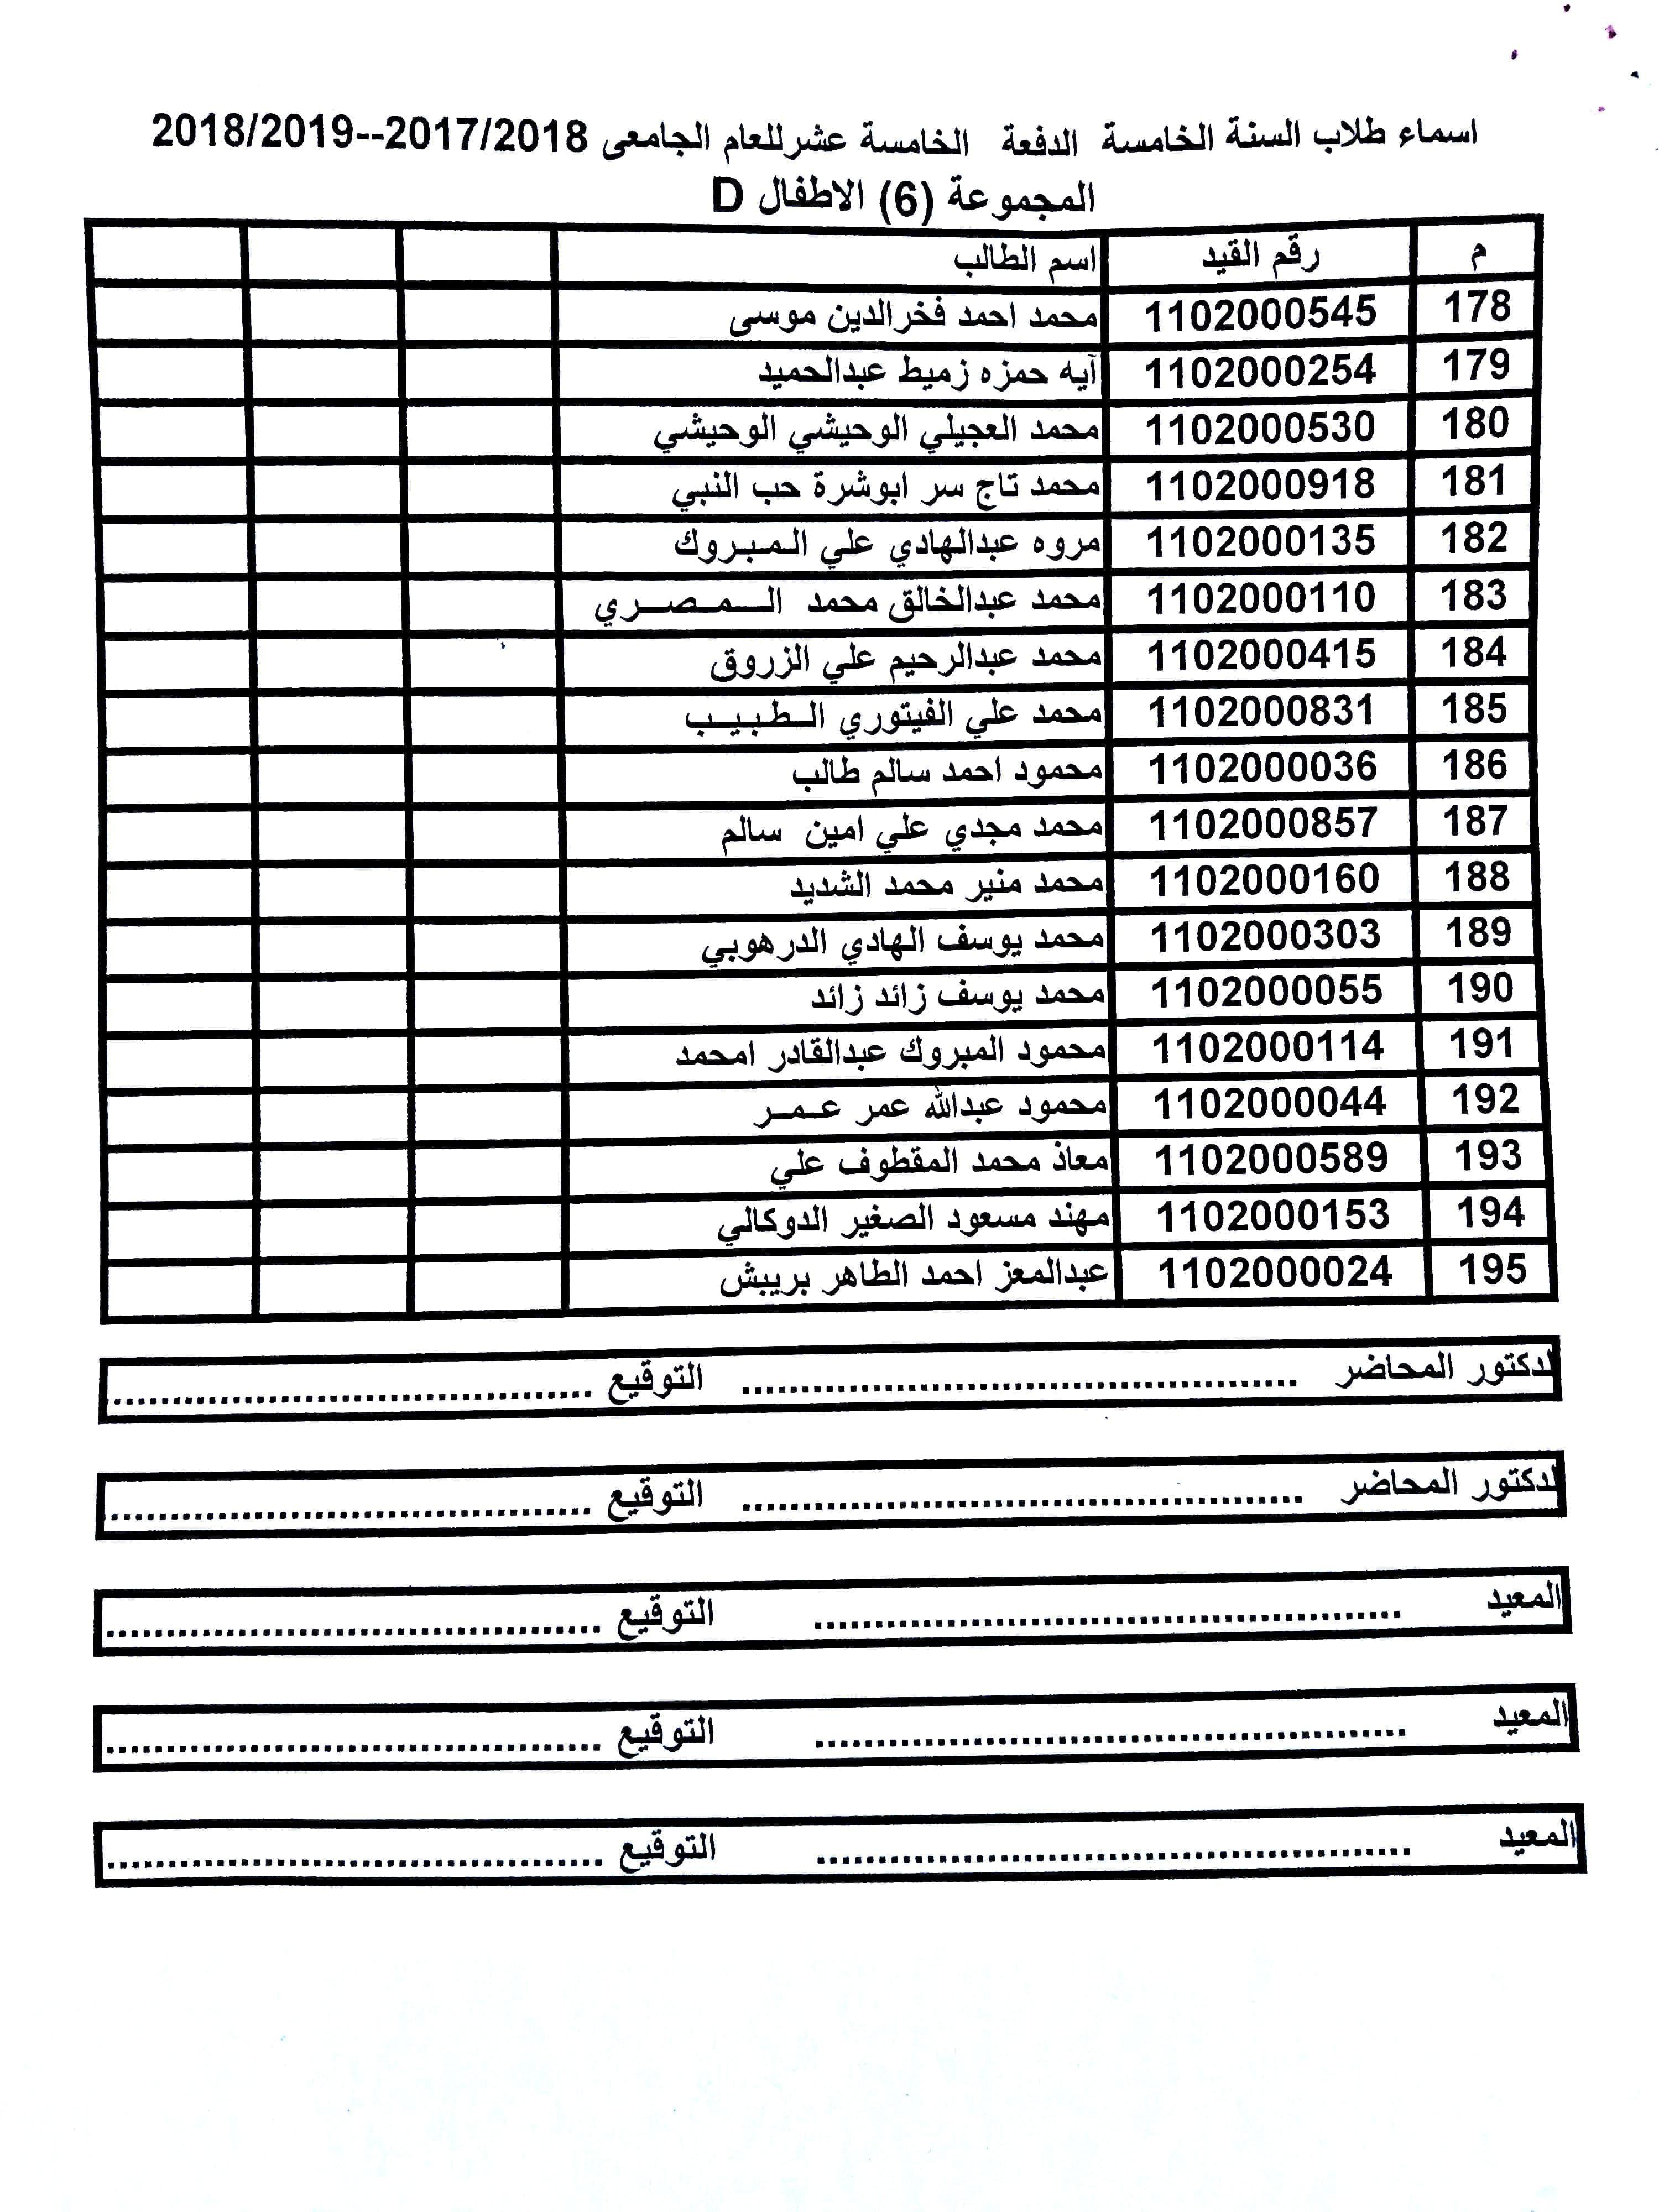 اسماء طلاب السنة الخامسة الدفعة الخامسة عشرللعام الجامعى 2017/2018--2018/2019
المجموعة (6) الاطفال D
م رقم القيد اسم الطالب
178 1102000545 محمد احمد فخرالدين موسى
179 1102000254 آيه حمزه زميط عبدالحميد
180 1102000530 محمد العجيلي الوحيشي الوحيشي
181 1102000918 محمد تاج سر ابوشرة حب النبي
182 1102000135 مروه عبدالهادي علي المبروك
183 1102000110 محمد عبدالخالق محمد المصري
184 1102000415 محمد عبدالرحيم علي الزروق
185 1102000831 محمد علي الفيتوري الطبيب
186 1102000036 محمود احمد سالم طالب
187 1102000857 محمد مجدي علي امين سالم
188 1102000160 محمد منير محمد الشديد
189 1102000303 محمد يوسف الهادي الدرهوبي
190 1102000055 محمد يوسف زائد زائد
191 1102000114 محمود المبروك عبدالقادر امحمد
192 1102000044 محمود عبدالله عمر عمر
193 1102000589 معاذ محمد المقطوف علي
194 1102000153 مهند مسعود الصغير الدوكالي
195 1102000024 عبدالمعز احمد الطاهر بريبش
لدكتور المحاضر ................................................ التوقيع ........................................
لدكتور المحاضر ................................................ التوقيع ........................................
المعيد ................................................ التوقيع ........................................
المعيد ................................................ التوقيع ........................................
المعيد ................................................ التوقيع ........................................